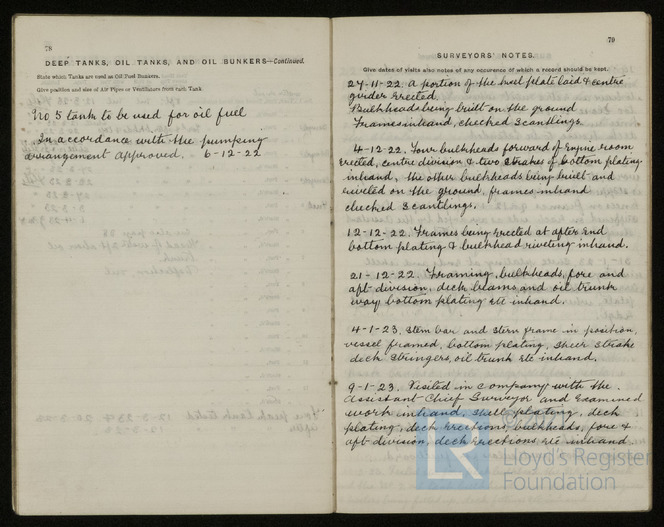 78
DEEP TANKS, OIL TANKS, AND OIL BUNKERS—Continued.
State which Tanks are used as Oil Fuel Bunkers.
Give position and size of Air Pipes or Ventilators from each Tank.
No 5 tank to be used for oil fuel
In accordance with the pumping
arrangement approved. 6-12-22
79
SURVEYORS' NOTES.
Give dates of visits also notes of any occurence of which a record should be kept.
27-11-22. A portion of the keel plate laid & centre
girder erected.
Bulkheads being built on the ground
Frames inhand, checked scantlings.
4-12-22. Four bulkheads forward of Engine room
erected, centre division & two strakes of bottom plating
inhand, the other bulkheads being built and
riveted on the ground, frames inhand
checked scantlings.
12-12-22. Frames being erected at after end
bottom plating & bulkhead riveting inhand.
21-12-22. Framing, bulkheads, fore and
aft division, deck beams and oil trunk
way bottom plating etc inhand.
4-1-23. Stem bar and stern frame in position,
vessel framed, bottom plating, sheer strake
deck stringers, oil trunk etc inhand.
9-1-23. Visited in company with the
Assistant Chief Surveyor and examined
work inhand, shell plating, deck
plating, deck erections, bulkheads, fore &
aft division, deck erections etc inhand.
LR
Lloyd's Register
Foundation